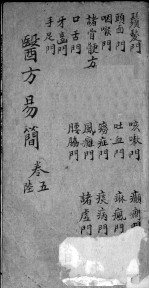 鬚髮門
頭面門
咽喉門
諸骨鯁方
口舌門
牙齒門
手足門
咳嗽門
吐血門
瘧症門
風癱門
腰脇門
癲癇門
麻瘋門
痰病門
諸虛門
醫方易簡
卷五
陸